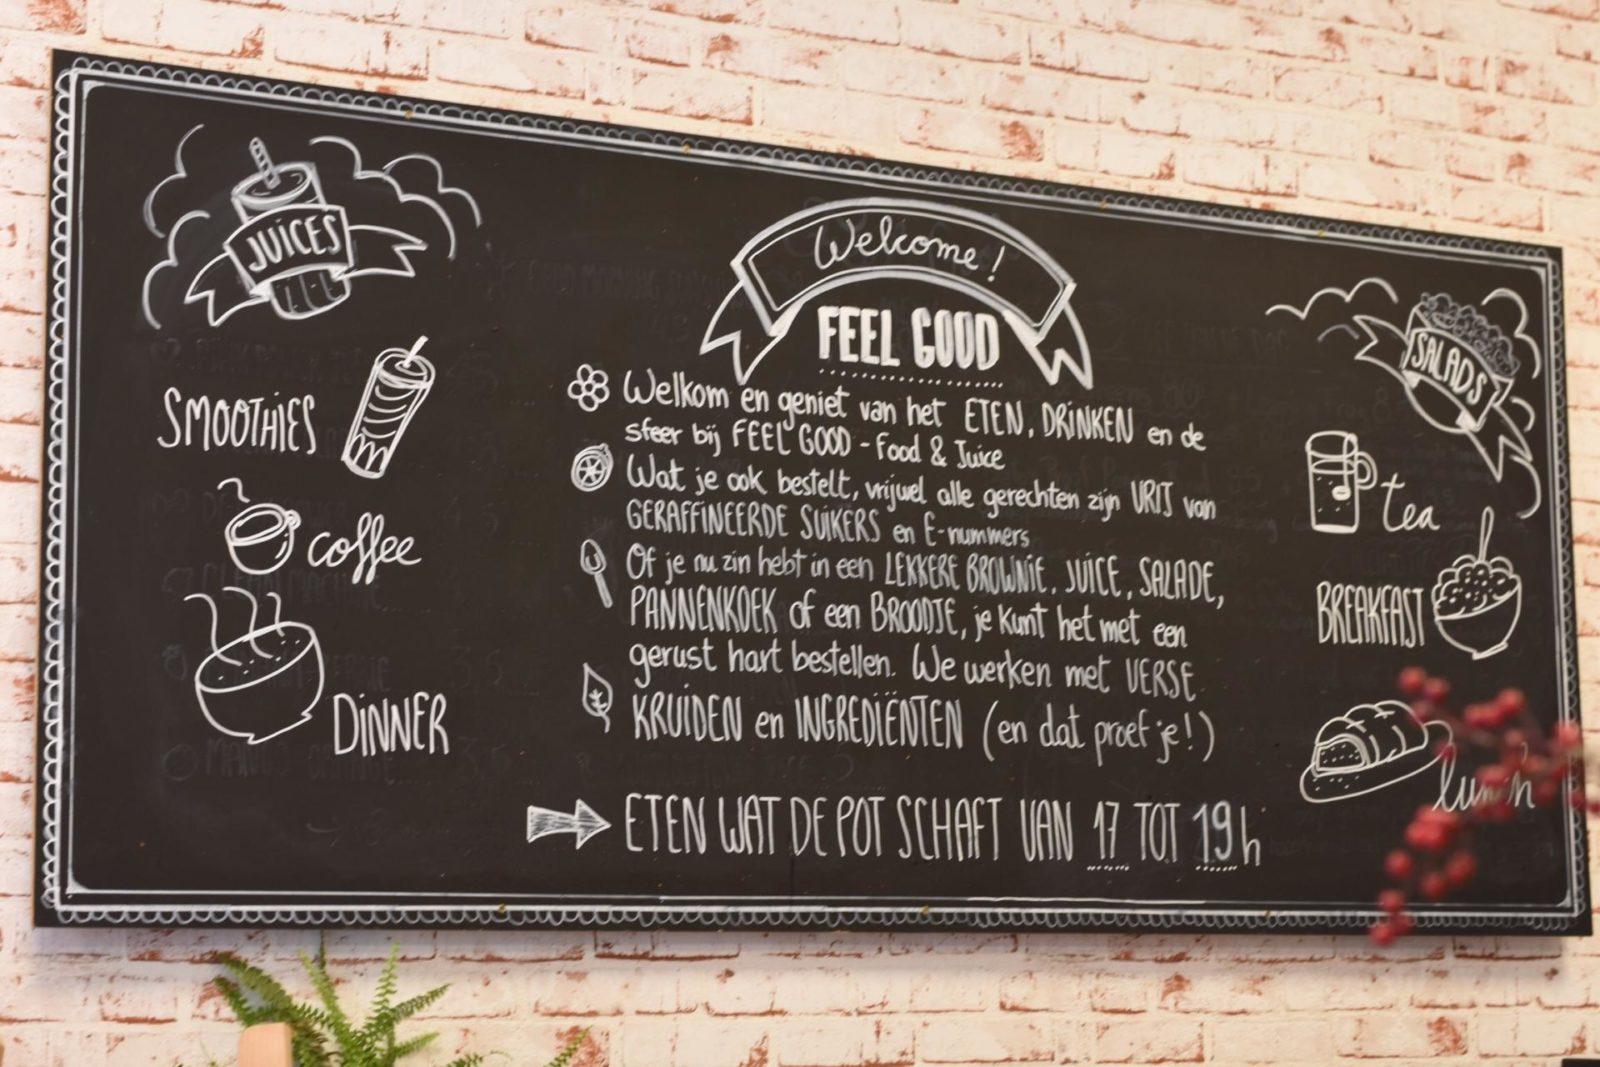 JUICES
SMOOTHIES
coffee
DINNER
Welcome!
FEEL GOOD
Welkom en geniet van het ETEN, DRINKEN en de
sfeer bij FEEL GOOD - Food & Juice
Wat je ook bestelt, vrijwel alle gerechten zijn VRIJ van
GERAFFINEERDE SUIKERS en E-nummers
Of je nu zin hebt in een LEKKERE BROWNIE, JUICE, SALADE,
PANNENKOEK of een BROODJE, je kunt het met een
gerust hart bestellen. We werken met VERSE
KRUIDEN en INGREDIËNTEN (en dat proef je!)
ETEN WAT DE POT SCHAFT VAN 17 TOT 19h
SALADS
tea
BREAKFAST
lunch